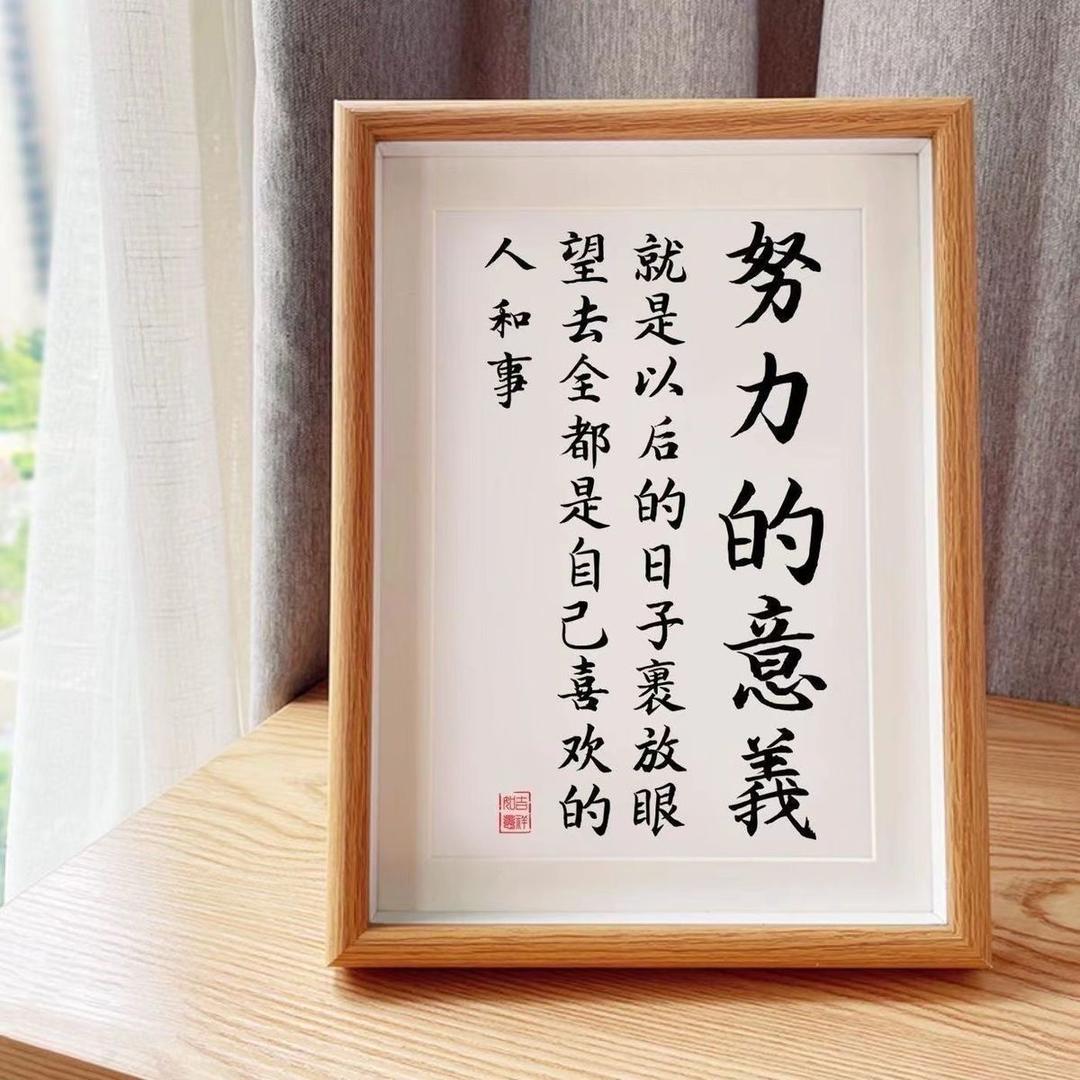 努力的意義
就是以后的日子裹放眼
望去全都是自己喜欢的
人和事
吉祥
如意